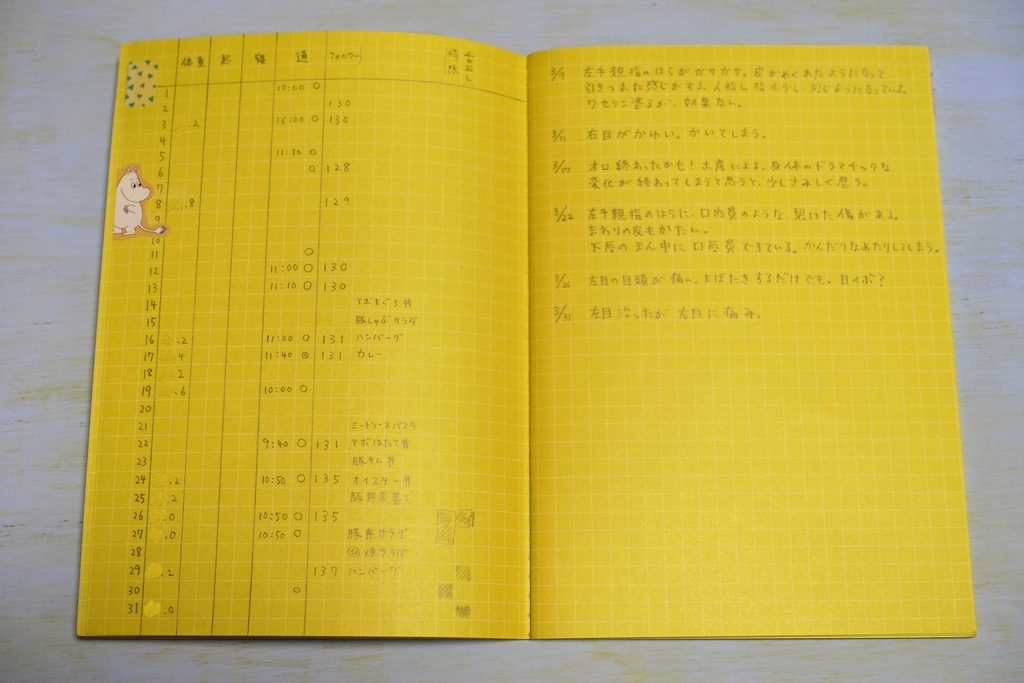 体重 起 寝 通 フォロワー 掃除
1 10:00 ○
2 130
3 .2 16:00 ○ 130
4
5 11:30 ○
6 ○ 128
7
8 .8 129
9
10
11 ○
12 11:00 ○ 130
13 11:10 ○ 130
14
15 豚しゃぶサラダ
16 .2 11:00 ○ 131 ハンバーグ
17 .4 11:40 ◎ 131 カレー
18 .2
19 .6 10:00 ○
20
21 ミートソースパスタ
22 9:40 ○ 131
23 豚キム丼
24 .2 10:50 ○ 135 オイスター丼
25 .2
26 .0 10:50 ○ 135
27 .0 10:50 ○ 豚丼サラダ
28 焼きそば
29 .2 137 ハンバーグ
30 ○
31 .0
3/9 左手親指のはらがガサガサ。皮がめくれたようになって
引きつれた感じがする。人指し指も少し、同じようになっている。
ワセリン塗るが、効果ない。
3/11 右目がかゆい。かいてしまう。
オロ終わったかも!出産による、身体のドラマチックな
変化が終わってしまうと思うと、少しさみしく思う。
3/22 左手親指のはらに、口内炎のような、裂けた傷がある。
まわりの皮もかたい。
下唇のまん中に口唇炎できている。かんだりなめたりしてしまう。
3/26 左目の目頭が痛い。まばたきするだけでも。目イボ?
3/31 左目治ったが右目に痛み。